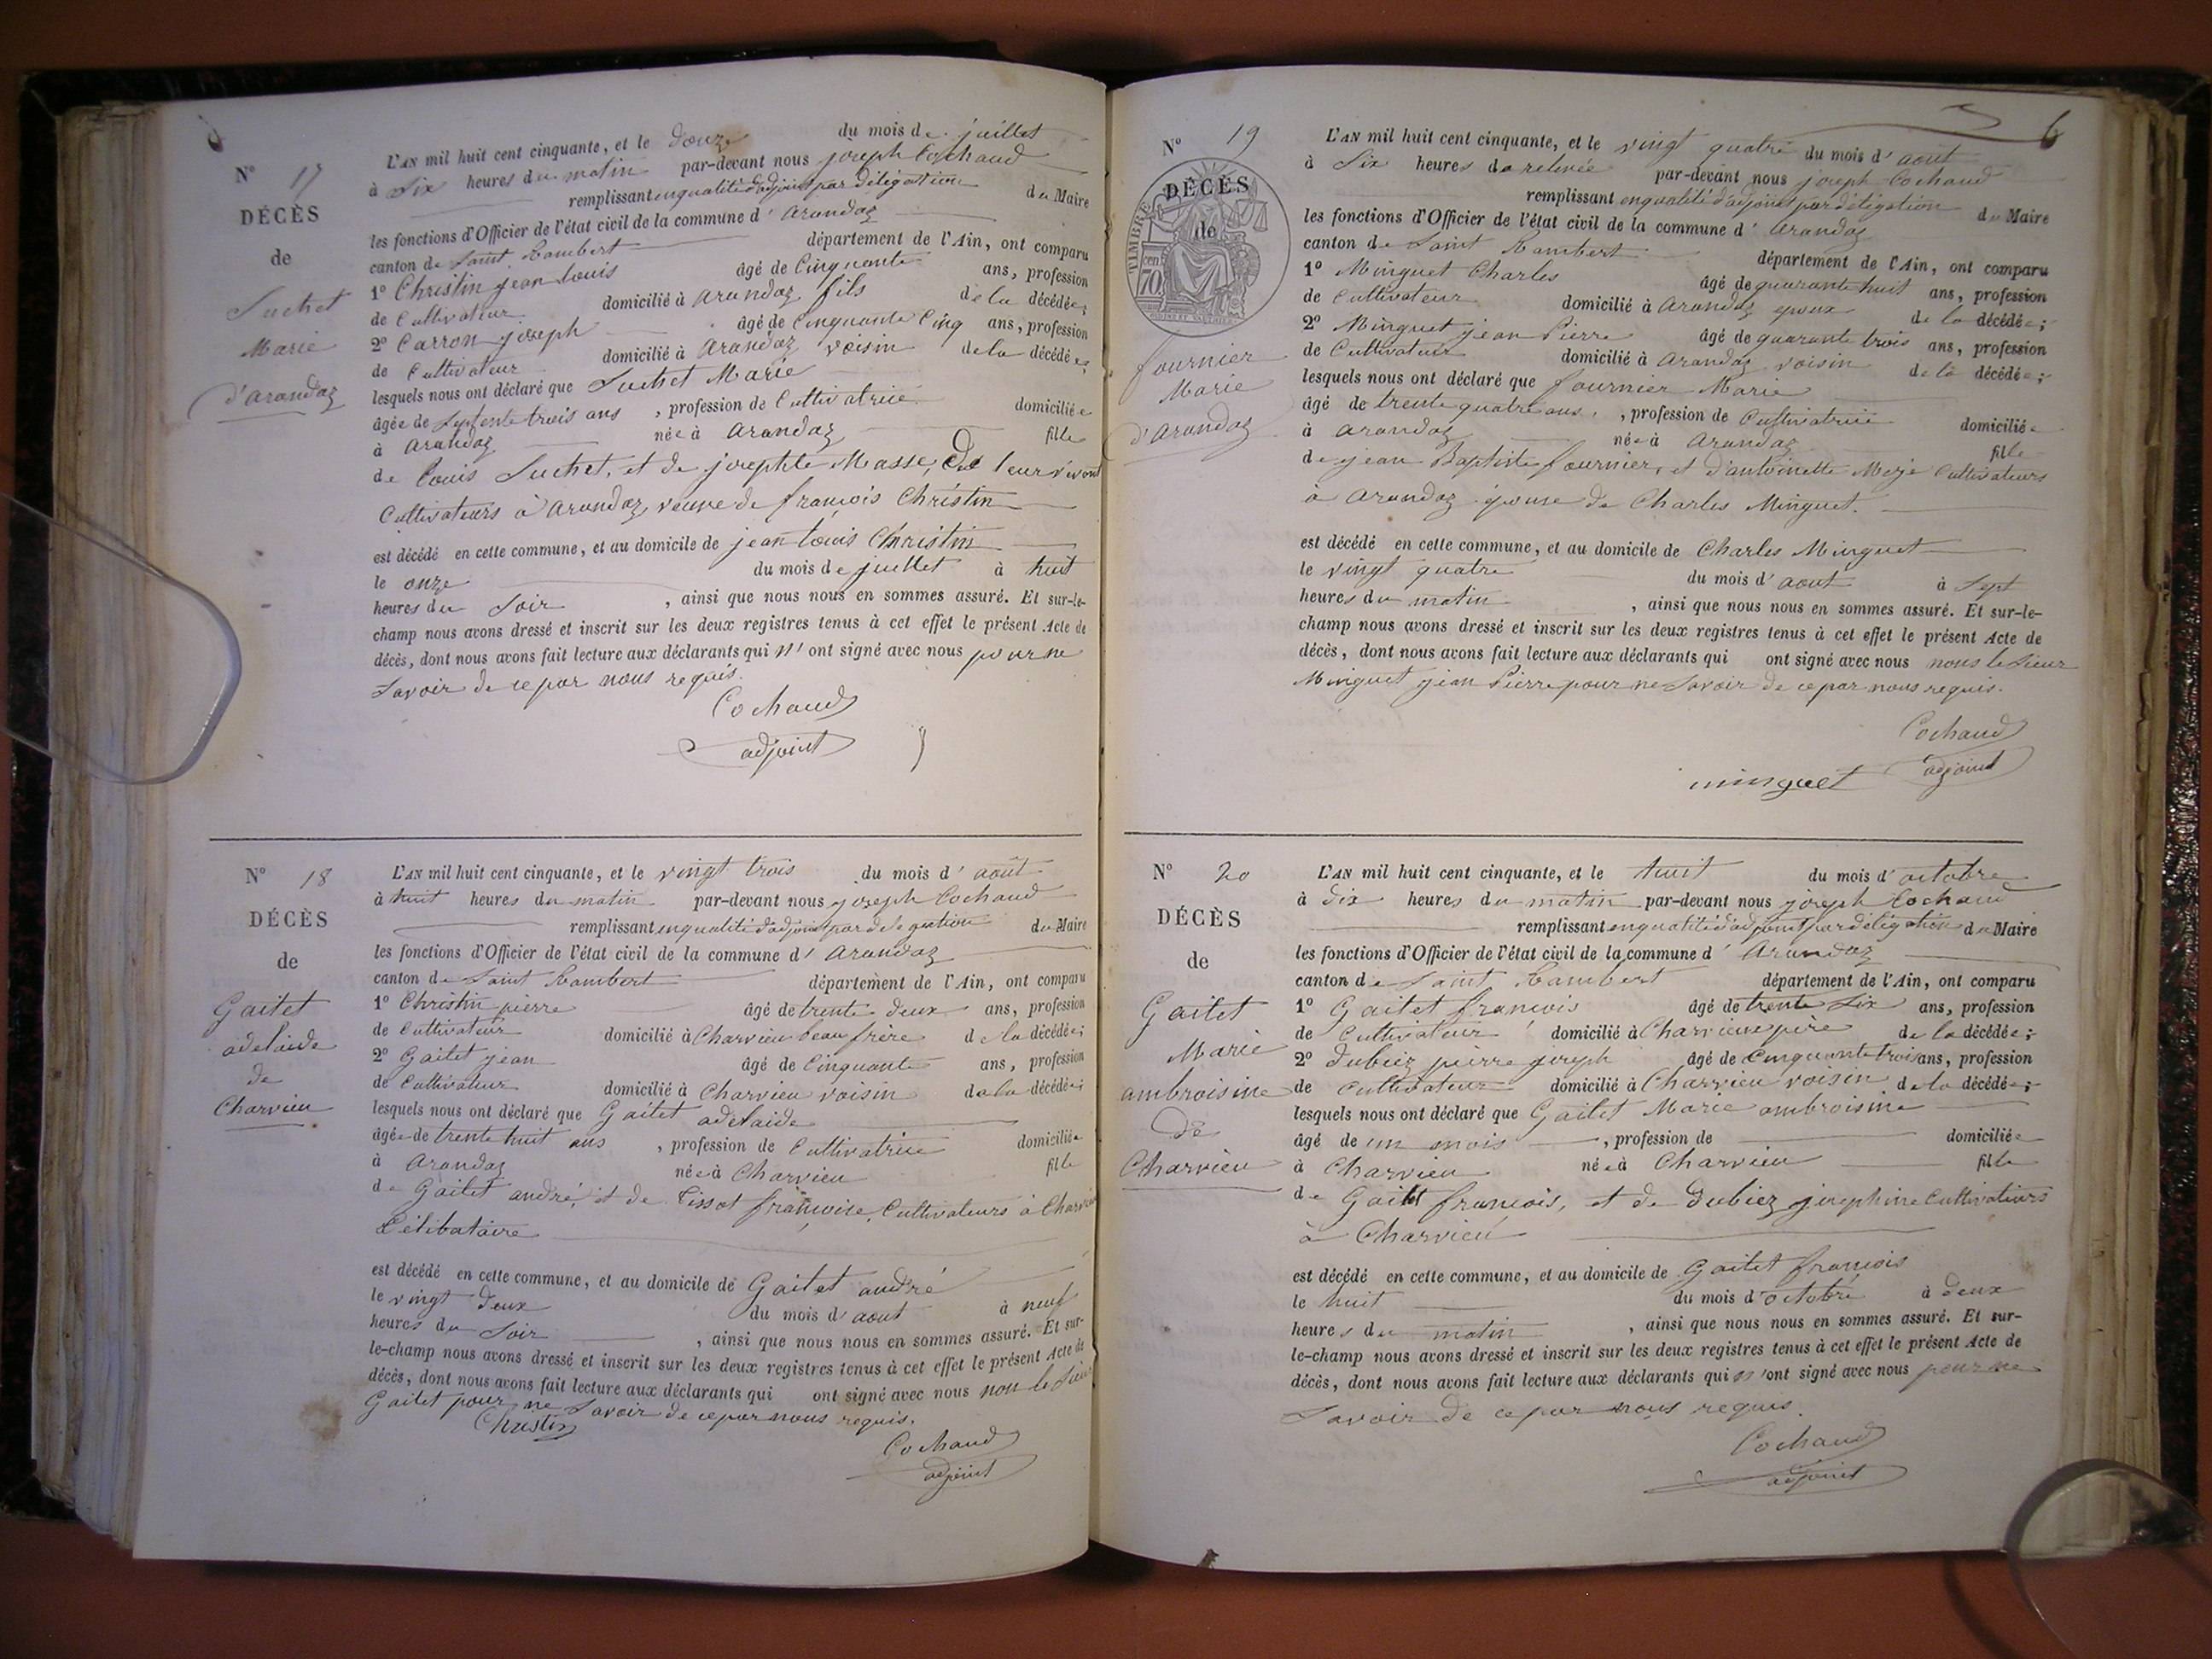 N° 17
DÉCÈS
de
Suchet
Marie
d'arandaz
L'AN mil huit cent cinquante, et le douze du mois de juillet
à Six heures du matin par-devant nous joseph Cochaud
remplissant en qualité d'adjoint par délégation du Maire
les fonctions d'Officier de l'état civil de la commune d' arandaz
canton de Saint Rambert département de l'Ain, ont comparu
1° Christin jean Louis âgé de Cinquante ans, profession
de Cultivateur domicilié à arandaz fils de la décédée;
2° Carron joseph âgé de Cinquante Cinq ans, profession
de Cultivateur domicilié à arandaz voisin de la décédée;
lesquels nous ont déclaré que Suchet Marie
âgée de Septente trois ans, profession de Cultivatrice domiciliée
à arandaz née à arandaz fille
de Louis Suchet, et de josephte Masse, De leur vivant
Cultivateurs à arandaz, veuve de francois Christin
est décédé en cette commune, et au domicile de jean Louis Christin
le onze du mois de juillet à huit
heures du Soir, ainsi que nous nous en sommes assuré. Et sur-le-
champ nous avons dressé et inscrit sur les deux registres tenus à cet effet le présent Acte de
décès, dont nous avons fait lecture aux déclarants qui n' ont signé avec nous pour ne
Savoir de ce par nous requis.
Cochaud
adjoint
N° 18
DÉCÈS
de
Gaitet
adelaide
de
Charvieu
L'AN mil huit cent cinquante, et le vingt trois du mois d' août
à huit heures du matin par-devant nous joseph Cochaud
remplissant en qualité d'adjoint par delegation du Maire
les fonctions d'Officier de l'état civil de la commune d' Arandaz
canton de Saint Rambert département de l'Ain, ont comparu
1° Christin pierre âgé de trente deux ans, profession
de Cultivateur domicilié à Charvieu beau frère de la décédée;
2° Gaitet jean âgé de Cinquante ans, profession
de Cultivateur domicilié à Charvieu voisin de la décédée;
lesquels nous ont déclaré que Gaitet adelaide
âgée de trente huit ans, profession de Cultivatrice domiciliée
à Arandaz née à Charvieu fille
de Gaitet andré, et de Tissot françoise, Cultivateurs à Charvieu
Célibataire
est décédé en cette commune, et au domicile de Gaitet andré
le vingt deux du mois d' aout à neuf
heures du Soir, ainsi que nous nous en sommes assuré. Et sur-
le-champ nous avons dressé et inscrit sur les deux registres tenus à cet effet le présent Acte de
décès, dont nous avons fait lecture aux déclarants qui ont signé avec nous non le Sieur
Gaitet pour ne Savoir de ce par nous requis.
Christin
Cochaud
adjoint
6
N° 19
DÉCÈS
de
TIMBRE
cen
70
fournier
Marie
d'Arandaz
L'AN mil huit cent cinquante, et le vingt quatre du mois d' aout
à Six heures de relevée par-devant nous joseph Cochaud
remplissant en qualité d'adjoint par délégation du Maire
les fonctions d'Officier de l'état civil de la commune d' Arandaz
canton de Saint Rambert département de l'Ain, ont comparu
1° Minguet Charles âgé de quarante huit ans, profession
de Cultivateur domicilié à Arandaz epoux de la décédée;
2° Minguet jean Pierre âgé de quarante trois ans, profession
de Cultivateur domicilié à arandaz voisin de la décédée;
lesquels nous ont déclaré que fournier Marie
âgé de trente quatre ans, profession de Cultivatrice domiciliée
à arandaz née à Arandaz fille
de jean Baptiste fournier, et d'antoinette Cultivateurs
à Arandaz épouse de Charles Minguet.
est décédé en cette commune, et au domicile de Charles Minguet
le vingt quatre du mois d' aout à Sept
heures du matin, ainsi que nous nous en sommes assuré. Et sur-le-
champ nous avons dressé et inscrit sur les deux registres tenus à cet effet le présent Acte de
décès, dont nous avons fait lecture aux déclarants qui ont signé avec nous nous le Sieur
Minguet jean Pierre pour ne Savoir de ce par nous requis.
Cochaud
adjoint
minguet
N° 20
DÉCÈS
de
Gaitet
Marie
ambroisine
de
Charvieu
L'AN mil huit cent cinquante, et le huit du mois d' octobre
à dix heures du matin par-devant nous joseph Cochaud
remplissant en qualité d'adjoint par délégation du Maire
les fonctions d'Officier de l'état civil de la commune d' Arandaz
canton de Saint Rambert département de l'Ain, ont comparu
1° Gaitet francois âgé de trente Six ans, profession
de Cultivateur domicilié à Charvieu père de la décédée;
2° Dubiez pierre joseph âgé de Cinquante trois ans, profession
de Cultivateur domicilié à Charvieu voisin de la décédée;
lesquels nous ont déclaré que Gaitet Marie ambroisine
âgé de un mois, profession de domiciliée
à Charvieu née à Charvieu fille
de Gaitet francois, et de Dubiez josephine Cultivateurs
à Charvieu
est décédé en cette commune, et au domicile de Gaitet francois
le huit du mois d'octobre à deux
heures du matin, ainsi que nous nous en sommes assuré. Et sur-
le-champ nous avons dressé et inscrit sur les deux registres tenus à cet effet le présent Acte de
décès, dont nous avons fait lecture aux déclarants qui n'ont signé avec nous pour ne
Savoir de ce par nous requis.
Cochaud
adjoint